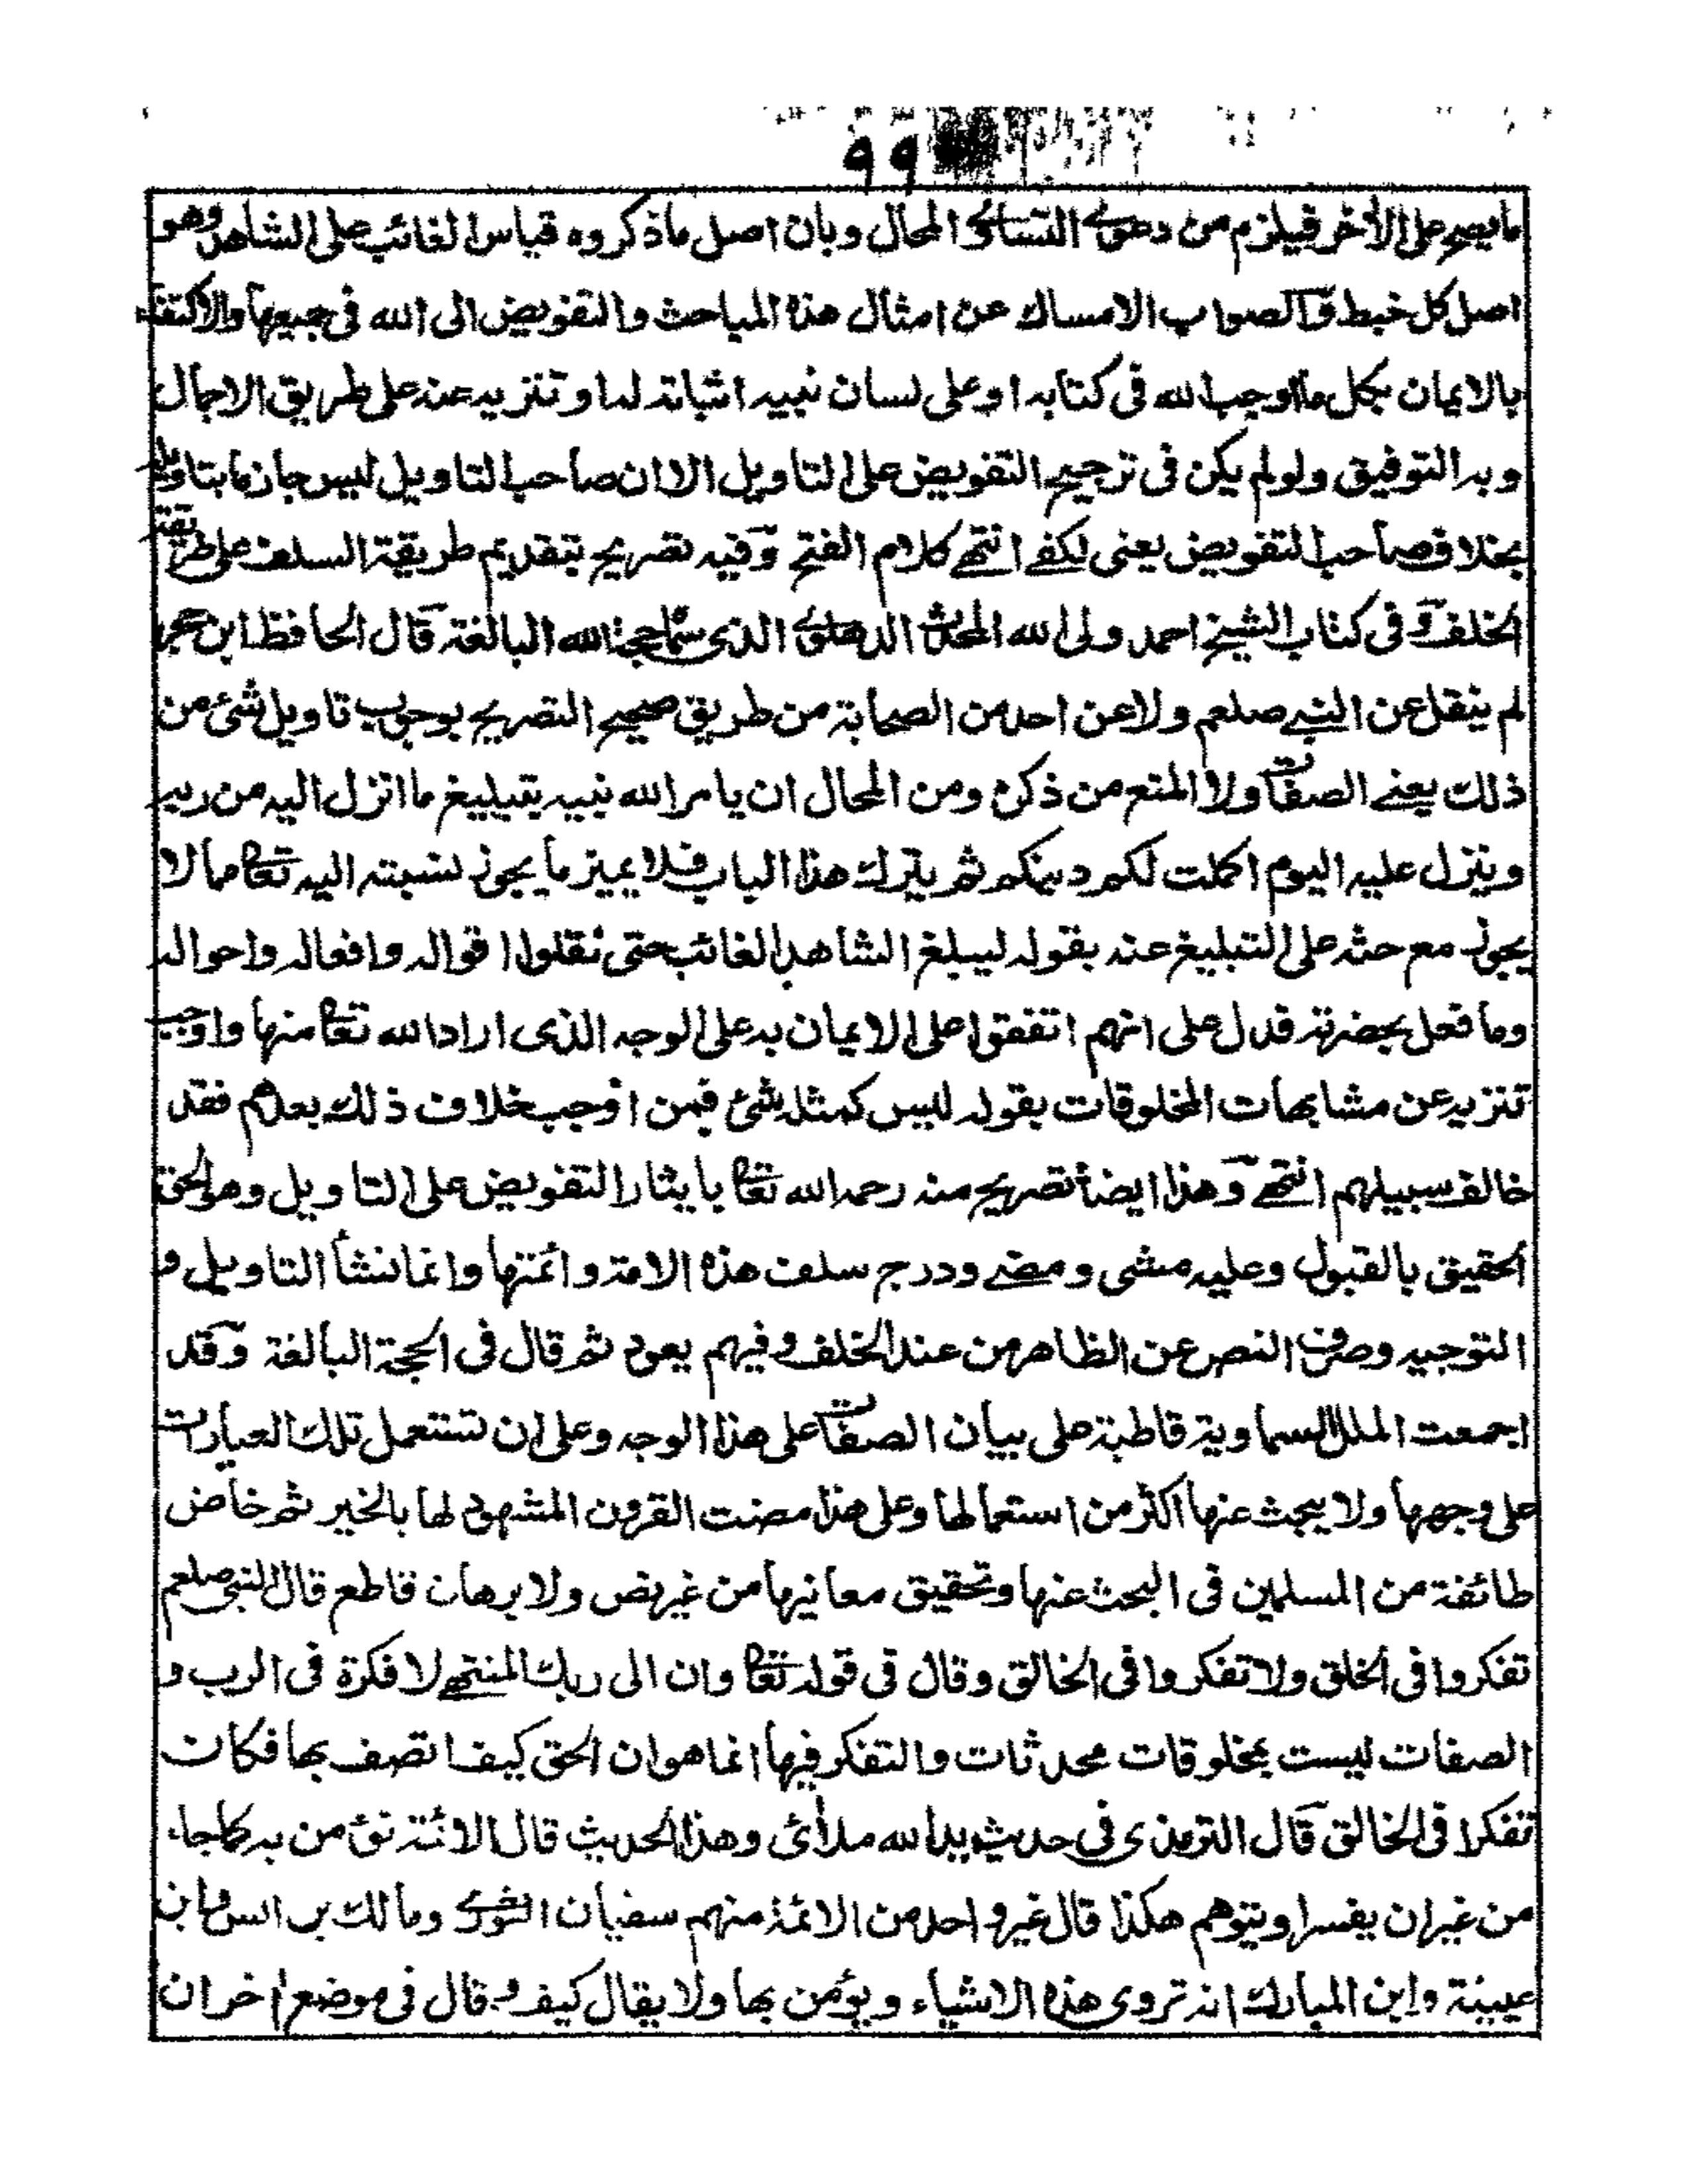 ٩٩
ما يصح على الأخر فيلزم من دعوى التساوى المحال وبان اصل ماذكروه قياس الغائب على الشاهد وهو
اصل كل خبط والصواب الامساك عن امثال هذه المباحث والتفويض الى الله فى جميعها والاكتفاء
بالايمان بكل ما اوجب الله فى كتابه او على لسان نبيه اثباته له او تنزيهه عنه على طريق الاجمال
وبه التوفيق ولو لم يكن فى ترجيح التفويض على التاويل الا ان صاحب التاويل ليس جازما بتاويله
بخلاف صاحب التفويض يعنى لكفى انتهى كلام الفتح وفيه تصريح بتقديم طريقة السلف على طريقة
الخلف وفى كتاب الشيخ احمد ولى الله المحدث الدهلوى الذى سماه حجة الله البالغة قال الحافظ ابن حجر
لم ينقل عن النبى صلعم ولا عن احد من الصحابة من طريق صحيح التصريح بوجوب تاويل شئ من
ذلك يعنى الصفات ولا المنع من ذكره ومن المحال ان يامر الله نبيه بتبليغ ما انزل اليه من ربه
وينزل عليه اليوم اكملت لكم دينكم ثم يترك هذا الباب فلا يميز ما يجوز نسبته اليه تعالى مما لا
يجوز مع حثه على التبليغ عنه بقوله ليبلغ الشاهد الغائب حتى نقلوا اقواله وافعاله واحواله
وما فعل بحضرته فدل على انهم اتفقوا على الايمان به على الوجه الذى اراد الله تعالى منها واوجب
تنزيه عن مشابهات المخلوقات بقوله ليس كمثله شئ فمن اوجب خلاف ذلك بعدهم فقد
خالف سبيلهم انتهى وهذا ايضا تصريح منه رحمه الله تعالى بايثار التفويض على التاويل وهو الحق
الحقيق بالقبول وعليه مشى ومضى ودرج سلف هذه الامة وائمتها وانما نشأ التاويل و
التوجيه وصرف النص عن الظاهر من عند الخلف وفيهم يعود ثم قال فى الحجة البالغة وقد
اجمعت الملل السماوية قاطبة على بيان الصفات على هذا الوجه وعلى ان تستعمل تلك العبارات
على وجهها ولا يبحث عنها اكثر من استعمالها وعلى هذا مضت القرون المشهود لها بالخير ثم خاض
طائفة من المسلمين فى البحث عنها وتحقيق معانيها من غير نص ولا برهان قاطع قال النبى صلعم
تفكروا فى الخلق ولا تفكروا فى الخالق وقال فى قوله تعالى وان الى ربك المنتهى لا فكرة فى الرب و
الصفات ليست بمخلوقات محدثات والتفكر فيها انما هو ان الحق كيف اتصف بها فكان
تفكرا فى الخالق قال الترمذى فى حديث يد الله ملأى وهذا الحديث قال الائمة نؤمن به كما جاء
من غير ان يفسر او يتوهم هكذا قال غير واحد من الائمة منهم سفيان الثورى ومالك بن انس وابن
عيينة وابن المبارك انه تروى هذه الاشياء ويؤمن بها ولا يقال كيف وقال فى موضع اخر ان